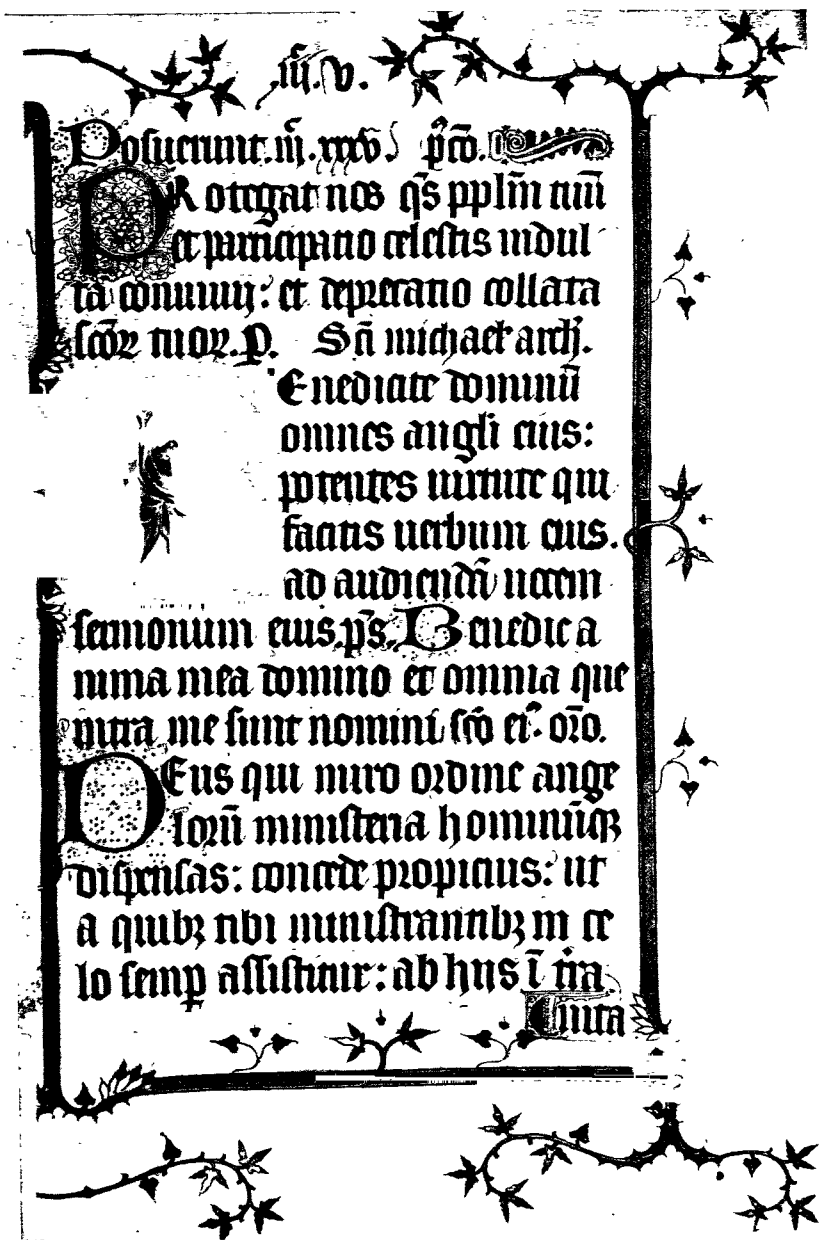 iii. v.
Posuerunt. iii. xxxv. pꝯco.
PRotegat nos qs̄ pplīm tuū
et participatio celestis indul
ta conuiuij: et deprecatio collata
scōꝝ tuoꝝ. p. Scī michael arch.
Enedicite dominū
omnes angli eius:
potentes uirtute qui
facitis uerbum eius.
ad audiendā uocem
sermonum eius. ps̄. Benedic a
nima mea domino et omnia que
intra me sunt nomini scō ei9. oro.
Deus qui miro ordine ange
lorū ministeria hominūqꝫ
dispensas: concede propicius: ut
a quibꝫ tibi ministrantibꝫ in ce
lo semꝑ assistitur: ab hiis ī t̄ra
uita